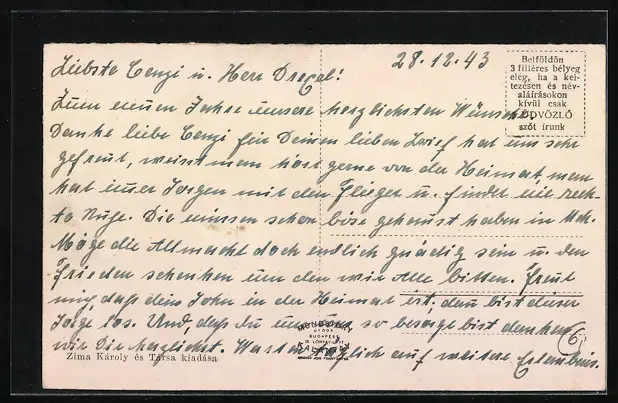 28.12.43
Liebste Cenzi u. Herr Drexel!
Zum neuen Jahre unsere herzlichsten Wünsche.
Danke liebe Cenzi für Deinen lieben Brief hat uns sehr
gefreut, weisst man hört gerne von der Heimat, man
hat immer Sorgen mit den Flieger u. findet nie rech-
te Ruhe. Die müssen schon böse gehaust haben in
Möge die Allmacht doch endlich gnädig sein u. den
Frieden schenken um den wir Alle bitten. Freut
mich, daß dein Sohn in der Heimat ist, dann bist dieser
Sorge los. Und, daß du um uns so besorgt bist danken
wir Dir herzlichst. Warten täglich auf weitere
Belföldön
3 filléres bélyeg
elég, ha a kel-
tezésen és név-
aláírásokon
kívül csak
ÜDVÖZLŐ
szót írunk
BUDAPEST
6
Zima Károly és Társa kiadása